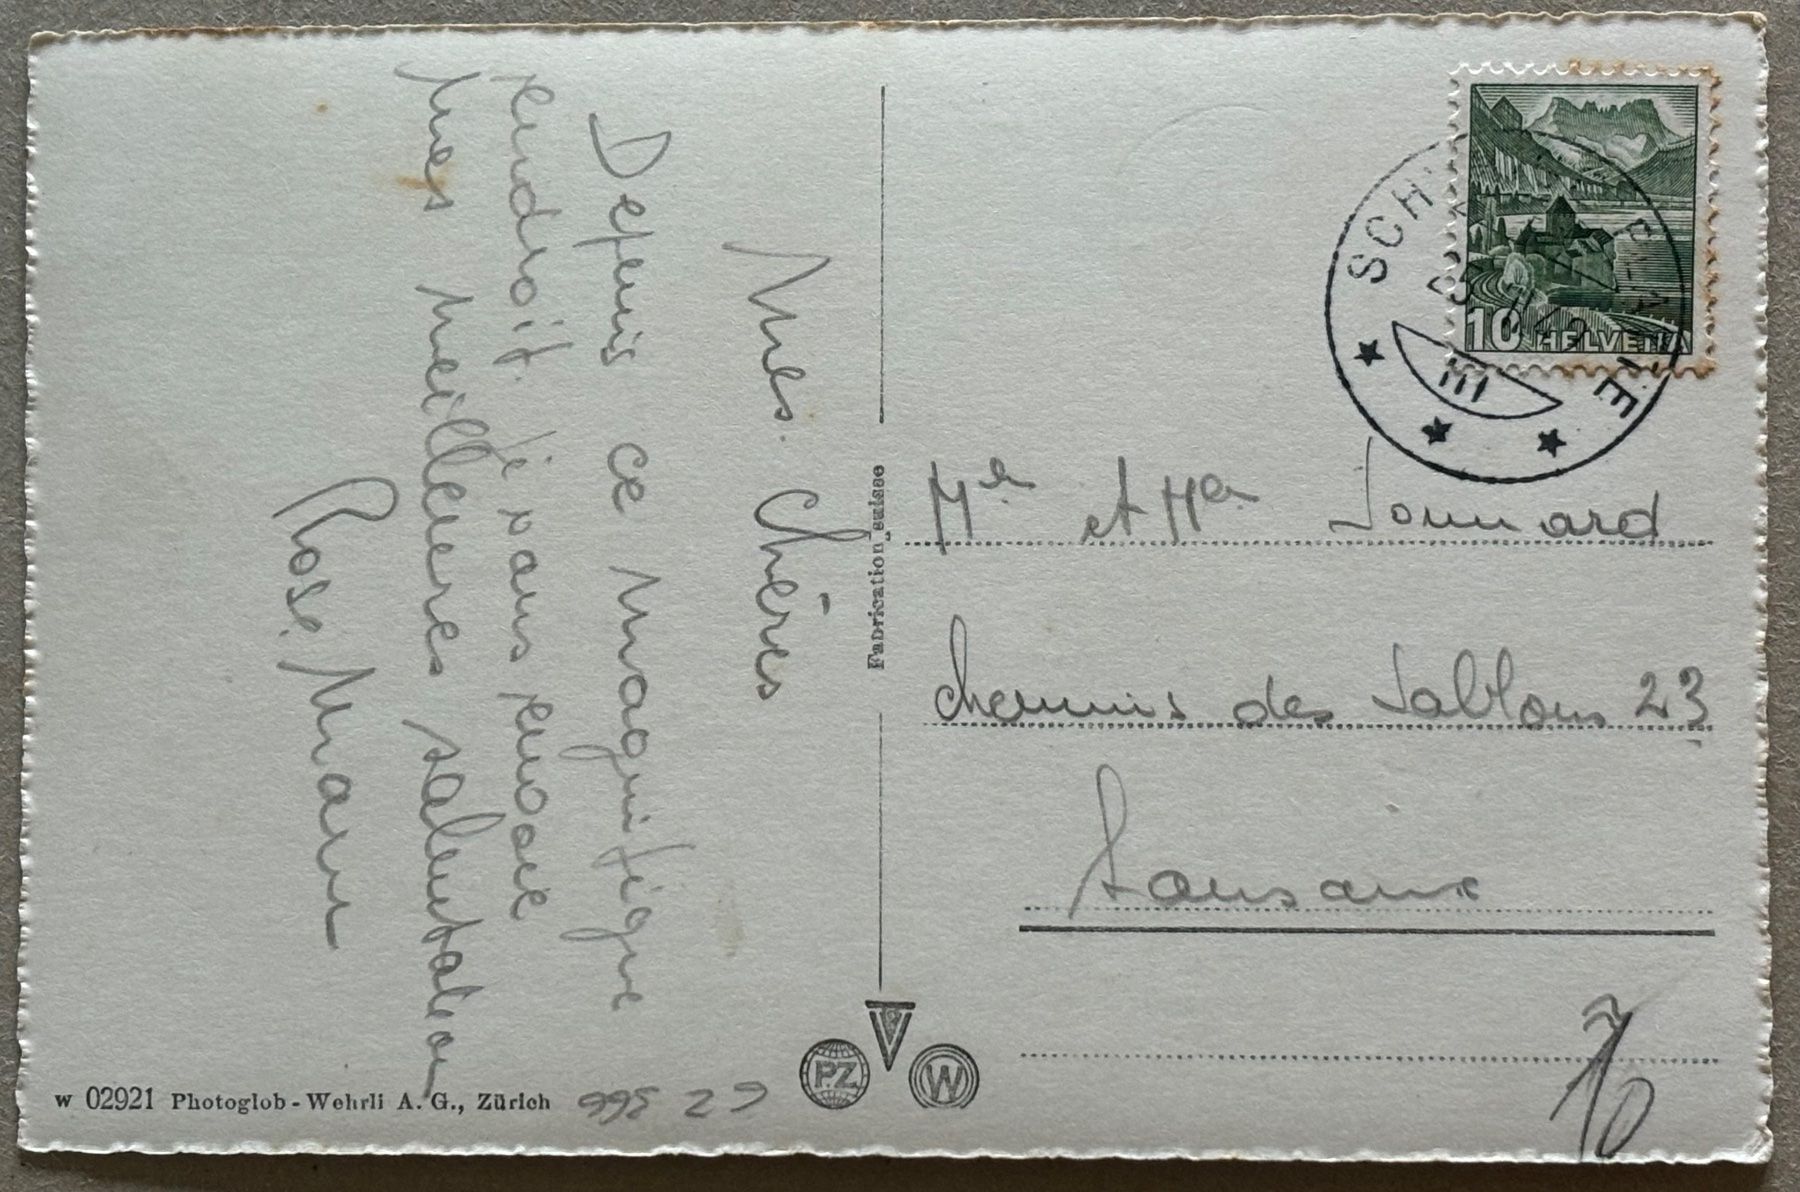 Mes Chères
Depuis ce magnifique
endroit je vous envoie
mes meilleures salutation
Rose.
Fabrication suisse
10 HELVETIA
SCH
III
et
chemins des Sablons 23
Lausanne
w 02921 Photoglob-Wehrli A. G., Zürich
PZ
W
10